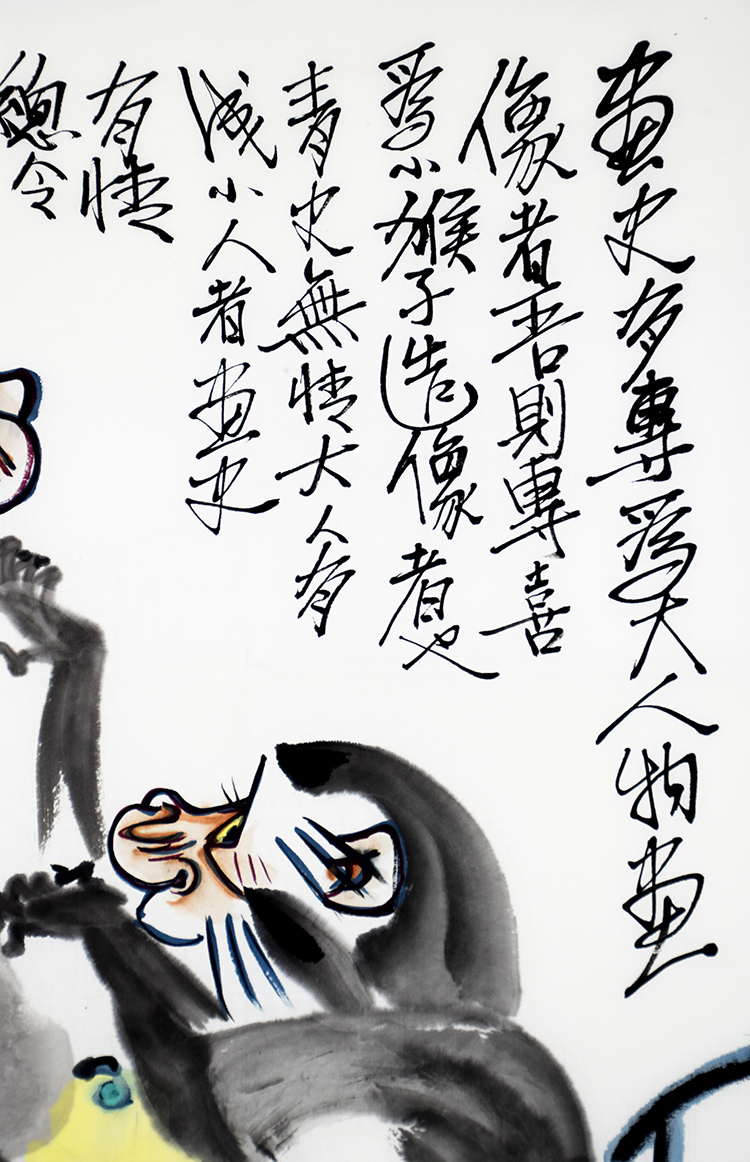 畫史有專爲大人物畫
像者吾則專喜
爲小猴子造像者也
青史無情大人有
滅小人者畫史
有情
總令